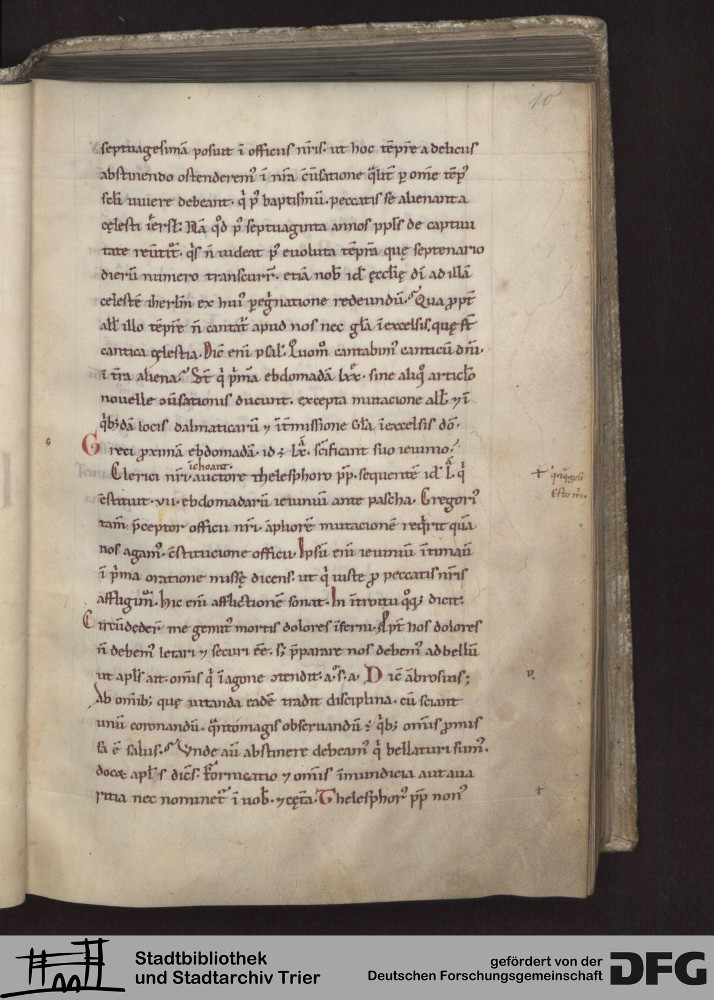 10
septuagesimā posuit ī officiis nr̄is. ut hoc tēpr̄e a deliciis
abstinendo ostenderem᷒ ī nr̄a cōūsatione qͣlit̄ ꝑ om̄e tēp᷒
sc̄li uiuere debeant. q̇ p᷒ baptismū. peccatis se alienant a
cęlesti
Nā qd̄ p᷒ septuaginta annos ppl̄s de captiui
tate reūtit᷒. qͥs n̄ uideat p᷒ euoluta tēpr̄a quę septenario
dierū numero transcurr̄. etiā nob̄ id ęcclīę dī ad illā
celestē ihērlm̄ ex hui᷒ peg̓natione redeundū. Qua ꝓpt̄
all̄ illo tēpr̄e n̄ cantat̄ apud nos nec gl̄a ī excelsis. quę st̄
cantica cęlestia. Dic̄ enī psal. Quom̊ cantabim᷒ canticū dn̄i.
ī t̄ra aliena.
q̇ pͥma ebdomadā lxx. sine aliq̊ articl̄o
nouelle cōūsationis ducunt. excepta mutacione all̄. ⁊ ī
qͥbꝫdā locis dalmaticarū ⁊ īt̄missione gl̄a ī excelsis dō.
Greci ꝓximā ebdomadā. id ē lx. sc̄ificant suo ieiunio.
īchoant
Clerici nr̄i. auctore thelesphoro pp̄. sequentē id l. q̇
īstituit .vii. ebdomadarū ieiuniū ante pascha. Gregori᷒
tam̄ p̄ceptor officii nr̄i. apliorē mutacionē reqͥrit quā
nos agam᷒. īstitucione officii. Ipsū enī ieiuniū
ī pͥma oratione missę dicens. ut q̇ iuste ꝓ peccatis nr̄is
affligim᷒. Hic enī afflictionē sonat. In īt̄roitu qͦꝗꝫ dicit.
Circūdeder̄ me gemit᷒ mortis dolores īferni. Apt̄ nos dolores
n̄ debem᷒ letari ⁊ securi eē. sꝫ p̄parare nos debem᷒ ad bellū
ut apl̄s ait. om̄is q̇ ī agone otendit. a. s. a. Dic̄ ābrosius;
Ab om̄ibꝫ quę uitanda eadē tradit disciplina. cū sciant
unū coronandū. qͣntomagis obseruandū ē. qͥbꝫ om̄is ꝓmis
sa ē salus. Vnde aū abstinere debeam᷒ q̇ bellaturi sum᷒.
docę apl̄s dic̄s. Fornicatio ⁊ om̄is īmundicia aut aua
ritia nec nominet᷒ ī uob̄. ⁊ cęt̄a. Thelesphor᷒ pp̄ non᷒
Stadtbibliothek
und Stadtarchiv Trier
gefördert von der
Deutschen Forschungsgemeinschaft
DFG